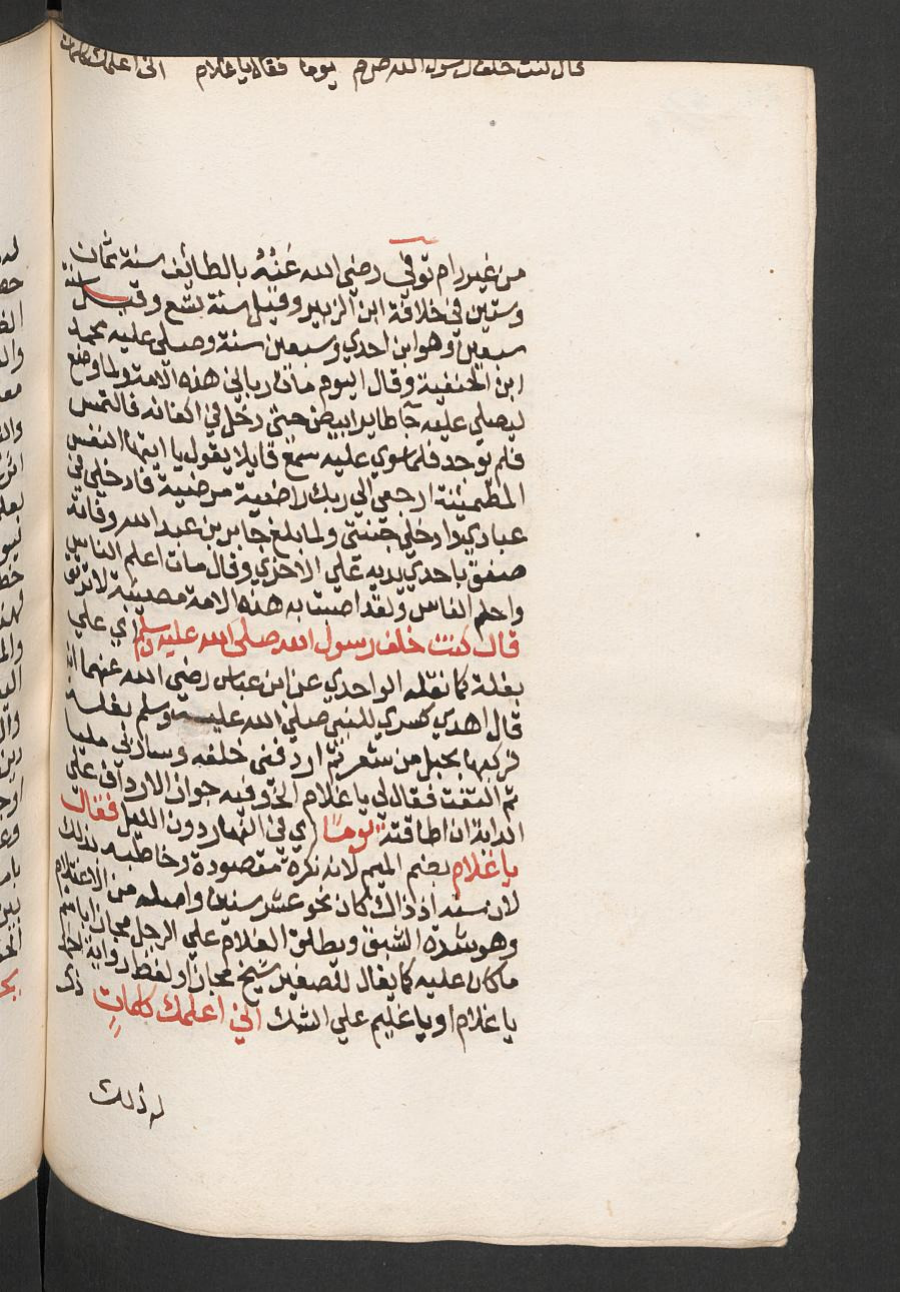 قال كنت خلف رسول الله صلعم يوما فقال يا غلام اني اعلمك كلمات
من غير رام توفي رضي الله عنه بالطائف سنة ثمان
وستين في خلافة ابن الزبير وقيل سنة تسع وقيل سنة
سبعين وهو ابن احدي وسبعين سنة وصلي عليه محمد
ابن الحنفية وقال اليوم مات رباني هذه الامة ولما وضع
ليصلي عليه جا طاير ابيض حتي دخل في اكفانه فالتمس
فلم يوجد فلما سوي عليه سمع قايلا يقول يا ايتها النفس
المطمئنة ارجعي الي ربك راضية مرضية فادخلي في
عبادي وادخلي جنتي ولما بلغ جابر بن عبد الله وفاته
صفق باحدي يديه علي الاخري وقال مات اعلم الناس
واحلم الناس ولقد اصيبت به هذه الامة مصيبة لا ترتق
قال كنت خلف رسول الله صلي الله عليه وسلم اي علي
بغلة كما نقله الواحدي عن ابن عباس رضي الله عنهما انه
قال اهدي كسري للنبي صلي الله عليه وسلم بغلة
فركبها بحبل من شعر ثم اردفني خلفه وسار بي مليا
ثم التفت فقال لي يا غلام الخ وفيه جواز الارداف علي
الدابة ان اطاقته يوما اي في النهار دون الليل فقال
يا غلام بضم الميم لانه نكرة مقصودة وخاطبه بذلك
لان سنه اذ ذاك كان نحو عشر سنين واصله من الاغتلام
وهو شدة الشبق ويطلق الغلام علي الرجل مجازا باسم
ما كان عليه كما يقال للصغير شيخ مجازا ولفظ رواية احمد
يا غلام او يا غليم علي الشك اني اعلمك كلمات ذكر
له ذلك